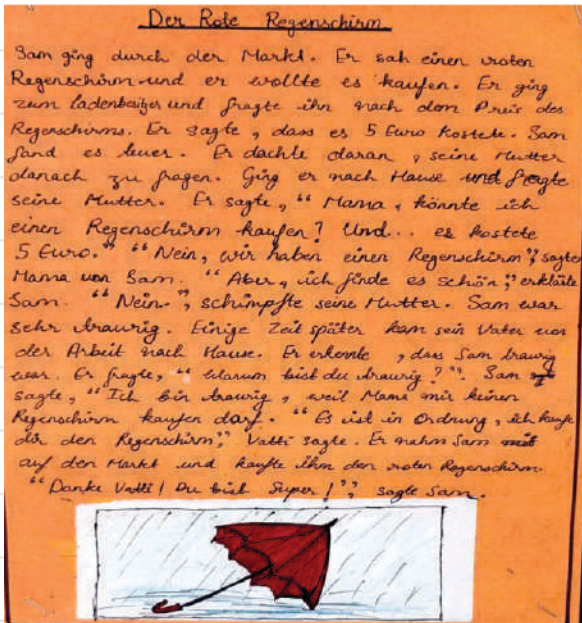 Der Rote Regenschirm
Sam ging durch der Markt. Er sah einen roten
Regenschirm und er wollte es kaufen. Er ging
zum ladenbesitzer und fragte ihn nach dem Preis des
Regenschirms. Er sagte, dass es 5 Euro kostete. Sam
fand es teuer. Er dachte daran, seine Mutter
danach zu fragen. Ging er nach Hause und fragte
seine Mutter. Er sagte, “Mama, könnte ich
einen Regenschirm kaufen? Und... es kostete
5 Euro.” “Nein, wir haben einen Regenschirm”, sagte
Mama von Sam. “Aber, ich finde es schön,” erklärte
Sam. “Nein.”, schimpfte seine Mutter. Sam war
sehr traurig. Einige Zeit später kam sein Vater von
der Arbeit nach Hause. Er erkennte, dass Sam traurig
war. Er fragte, “Warum bist du traurig?”. Sam
sagte, “Ich bin traurig, weil Mama mir keinen
Regenschirm kaufen darf. “Es ist in Ordnung, ich kaufe
dir den Regenschirm,” Vatti sagte. Er nahm Sam mit
auf den Markt und kaufte ihm den roten Regenschirm.
“Danke Vatti! Du bist Super!”, sagte Sam.